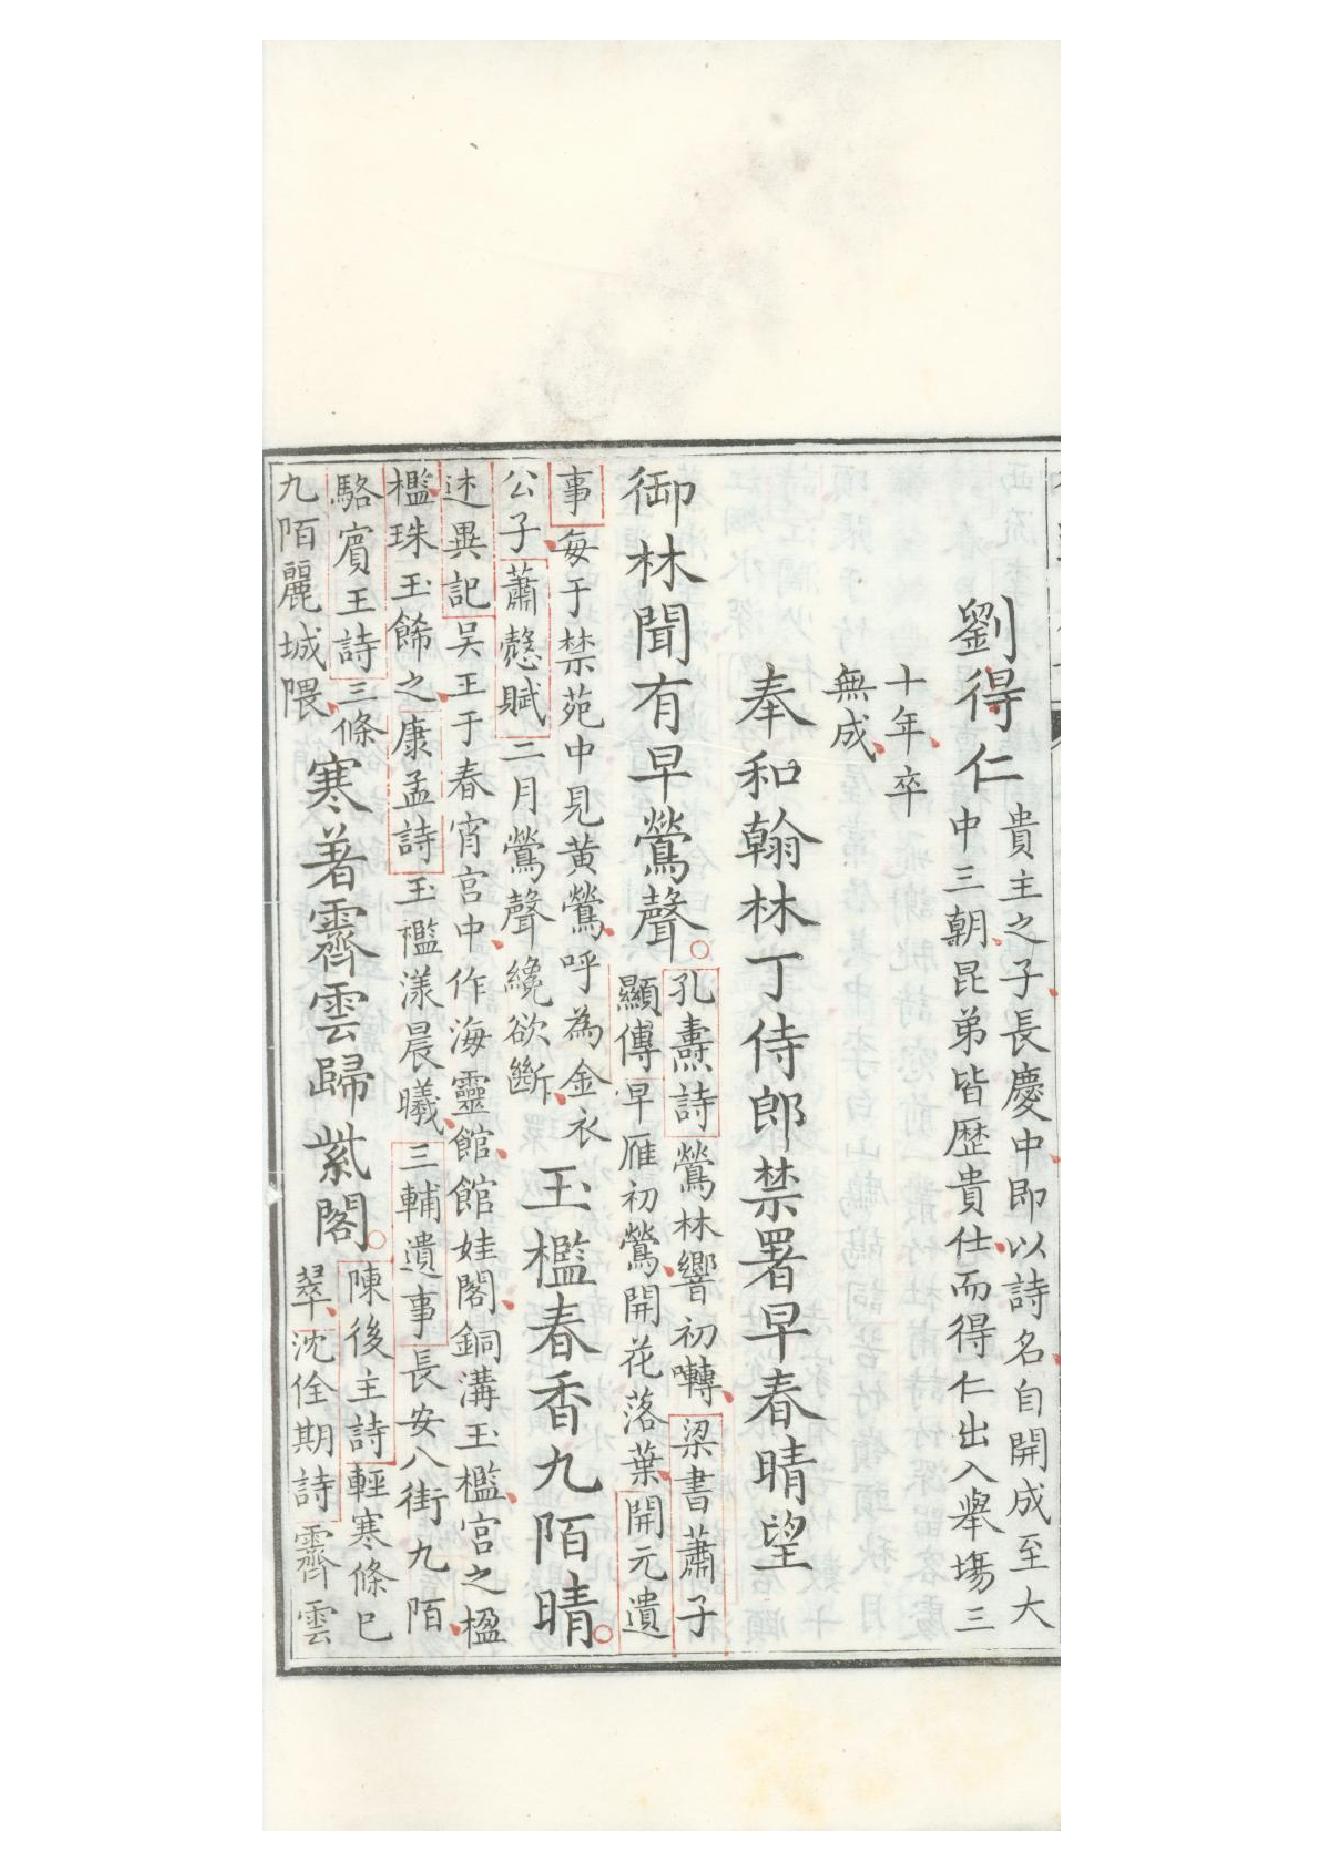 劉得仁
貴主之子長慶中即以詩名自開成至大
中三朝昆弟皆歴貴仕而得仁出入舉塲三
十年卒
無成
奉和翰林丁侍郎禁署早春晴望
御林聞有早鶯聲
孔燾詩鶯林響初囀梁書蕭子
顯傳早雁初鶯開花落葉開元遺
事每于禁苑中見黄鶯呼為金衣
公子蕭慤賦二月鶯聲纔欲斷
玉檻春香九陌晴
述異記吴王于春宵宫中作海靈館館娃閣銅溝玉檻宫之楹
檻珠玉餙之康孟詩玉檻漾晨曦三輔遺事長安八街九陌
駱賔王詩三條
九陌麗城隈
寒著霽雲歸紫閣
陳後主詩輕寒條已
翠沈佺期詩霽雲